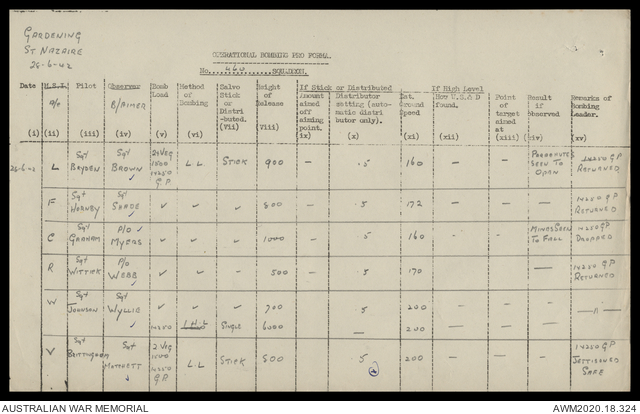 GARDENING
ST NAZAIRE
28-6-42
OPERATIONAL BOMBING PRO FORMA.
No. 460 SQUADRON.
Date M.S.I. Pilot Observer Bomb Load Method of Bombing Salvo Stick or Distributed. Height of Release If Stick or Distributed If High Level Point of target aimed at Result if observed Remarks of Bombing Leader.
A/C B/AIMER
Amount aimed off aiming point. Distributor setting (automatic distributor only). Int. Ground Speed How U.G.&D found.
(i) (ii) (iii) (iv) (v) (vi) (Vii) (Viii) ix) (x) (xi) (xii) (xiii) (xiv) (xv)
28-6-42 L Sgt BRYDEN Sgt BROWN 2 VEG 1500 1x250 G.P L.L STICK 900 — .5 160 — — PARACHUTES SEEN TO OPEN 1x250 GP RETURNED
F Sgt HORNBY Sgt SHADE ✓ ✓ ✓ 800 — .5 172 — — — 1x250 GP RETURNED
C Sgt GRAHAM P/O MYERS ✓ ✓ ✓ 1000 — .5 160 — — MINES SEEN TO FALL 1x250 GP DROPPED
R Sgt WITTICK P/O WEBB ✓ ✓ ✓ 500 — .5 170 — — — 1x250 GP RETURNED
W Sgt JOHNSON Sgt WYLLIE ✓ ✓ ✓ 700 — .5 200 — — — —"—
1x250 SINGLE 6000 — — 200 — — —
V Sgt BRITTINGHAM Sgt 2 VEG 1500 1x250 G.P L.L STICK 800 — .5 200 — — — 1x250 GP JETTISONED SAFE
AUSTRALIAN WAR MEMORIAL
AWM2020.18.324